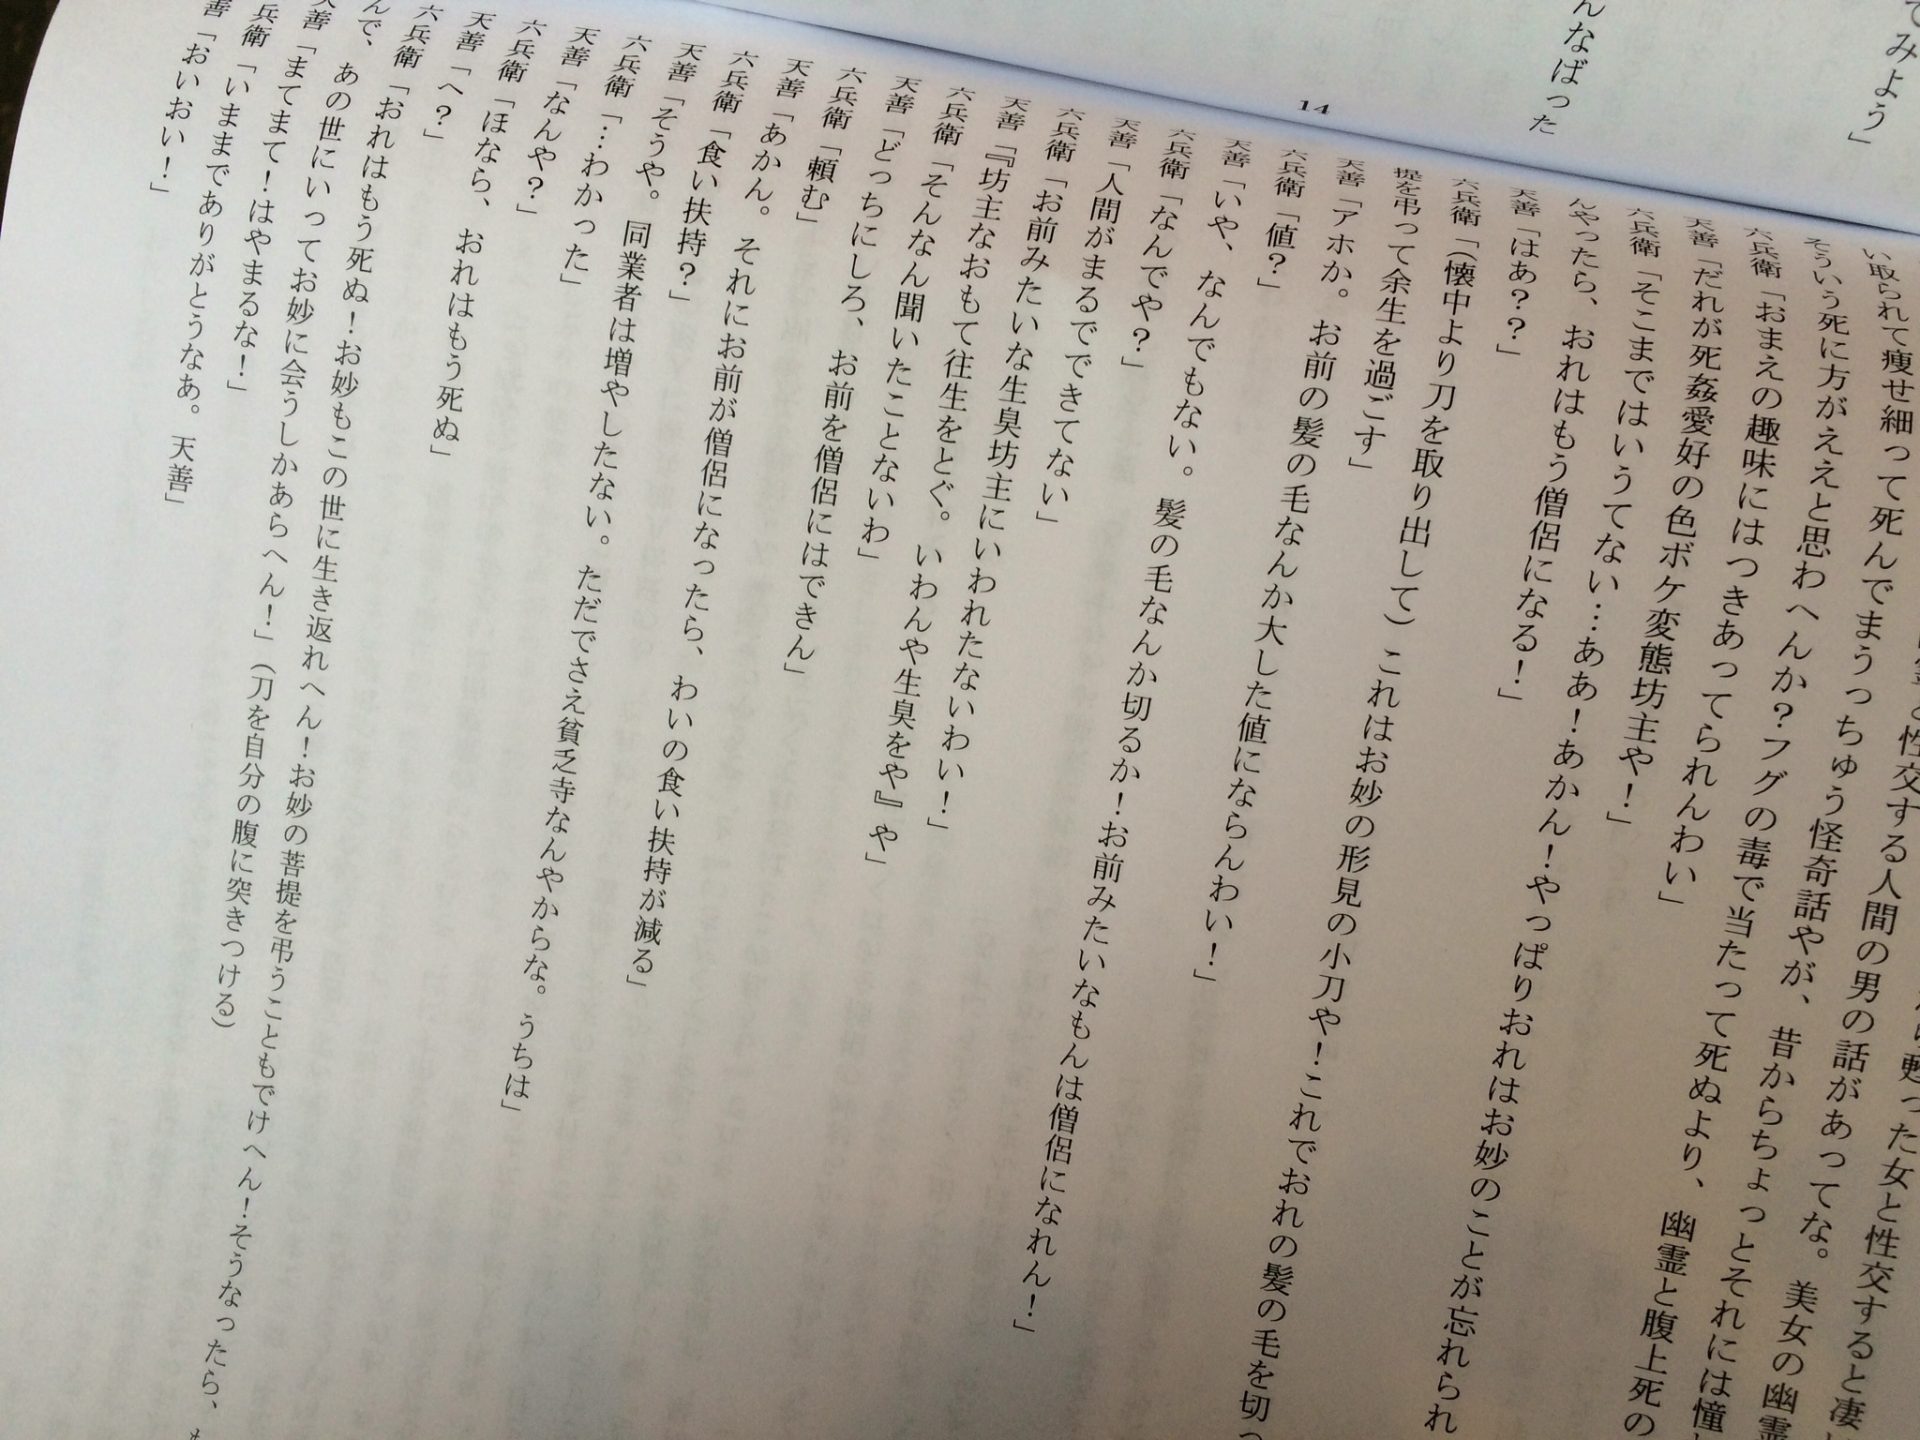 てみよう」
んなばった
14
甦った女と性交すると凄
性交する人間の男の話があってな。美女の幽霊
い取られて痩せ細って死んでまうっちゅう怪奇話やが、昔からちょっとそれには憧
そういう死に方がええと思わへんか？フグの毒で当たって死ぬより、幽霊と腹上死の
六兵衛「おまえの趣味にはつきあってられんわい」
天善「だれが死姦愛好の色ボケ変態坊主や！」
六兵衛「そこまではいうてない…ああ！あかん！やっぱりおれはお妙のことが忘れられ
んやったら、おれはもう僧侶になる！」
天善「はあ？？」
六兵衛「（懐中より刀を取り出して）これはお妙の形見の小刀や！これでおれの髪の毛を切っ
提を弔って余生を過ごす」
天善「アホか。お前の髪の毛なんか大した値にならんわい！」
六兵衛「値？」
天善「いや、なんでもない。髪の毛なんか切るか！お前みたいなもんは僧侶になれん！」
六兵衛「なんでや？」
天善「人間がまるでできてない」
六兵衛「お前みたいな生臭坊主にいわれたないわい！」
天善「『坊主なおもて往生をとぐ。いわんや生臭をや』や」
六兵衛「そんなん聞いたことないわ」
天善「どっちにしろ、お前を僧侶にはできん」
六兵衛「頼む」
天善「あかん。それにお前が僧侶になったら、わいの食い扶持が減る」
六兵衛「食い扶持？」
天善「そうや。同業者は増やしたない。ただでさえ貧乏寺なんやからな。うちは」
六兵衛「…わかった」
天善「なんや？」
六兵衛「ほなら、おれはもう死ぬ」
天善「へ？」
六兵衛「おれはもう死ぬ！お妙もこの世に生き返れへん！お妙の菩提を弔うこともでけへん！そうなったら、
んで、あの世にいってお妙に会うしかあらへん！」（刀を自分の腹に突きつける）
天善「まてまて！はやまるな！」
兵衛「いままでありがとうなあ。天善」
善「おいおい！」